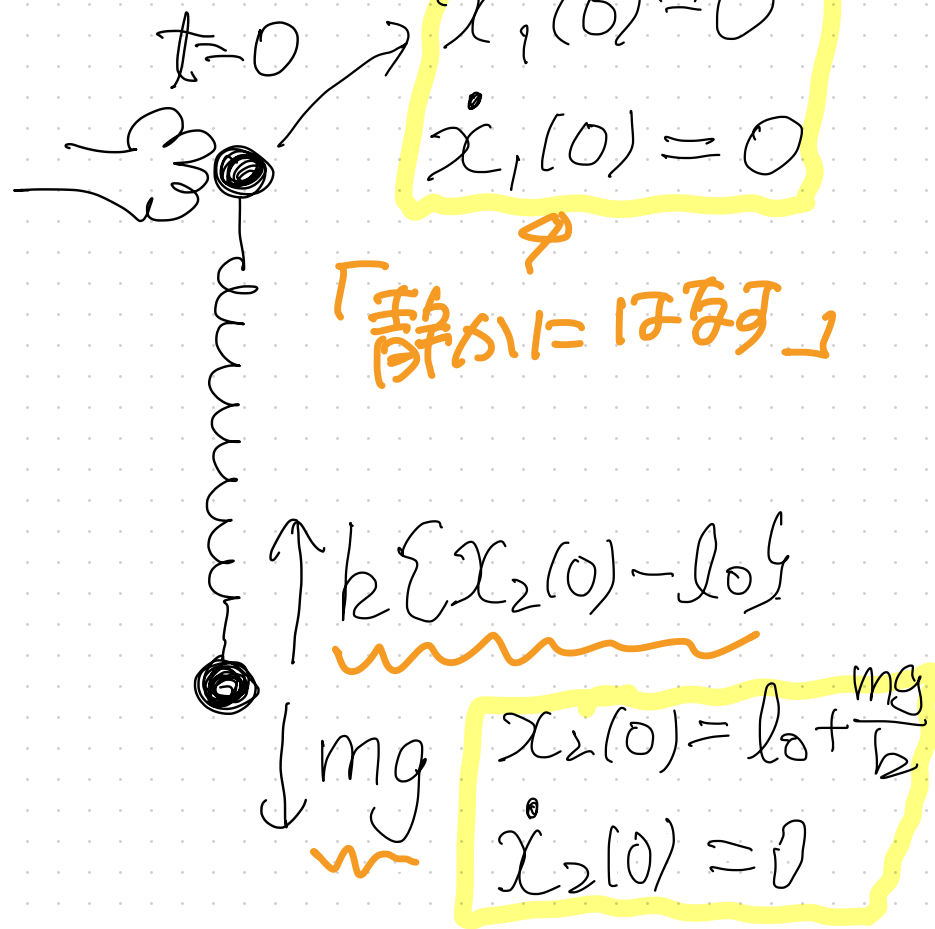 t=0
x₁(0)=0
ẋ₁(0)=0
「静かにはなす」
k{x₂(0)-l₀}
mg
x₂(0)=l₀+mg/k
ẋ₂(0)=0